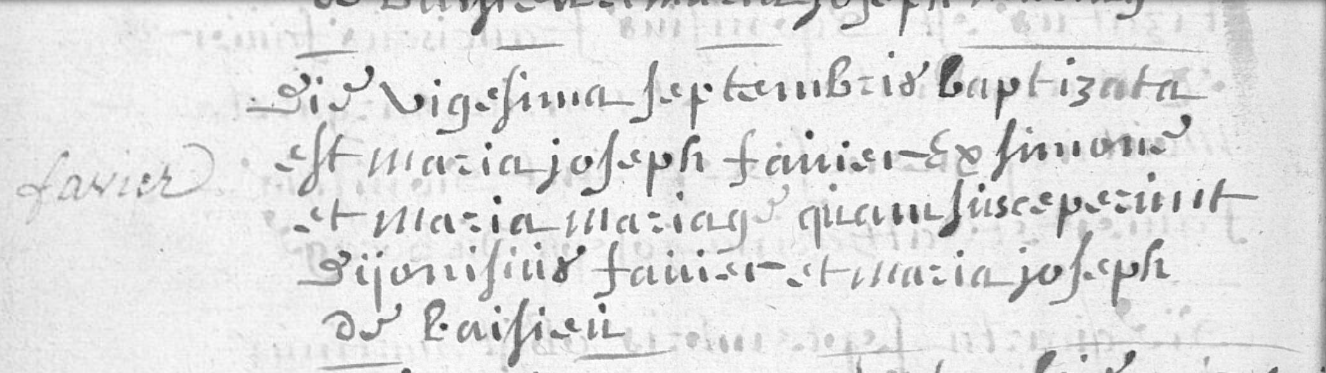 Die vigesima septembris baptizata
est maria joseph favier ex simone
favier
et maria mariage quam susceperunt
Dijonisius favier et maria joseph
de baisieu